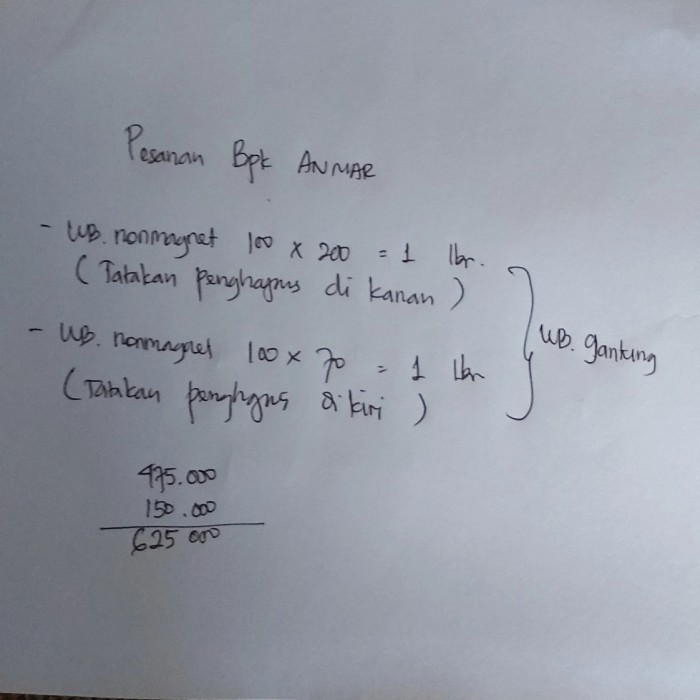 Pesanan Bpk ANMAR
- WB. nonmagnet 100 x 200 = 1 lbr.
(Tatakan penghapus di kanan)
- WB. nonmagnet 100 x 70 = 1 lbr
(Tatakan penghapus di kiri)
WB. gantung
475.000
150.000
625 000